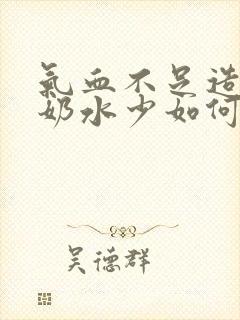 氣血不足造
奶水少如何
吴德群